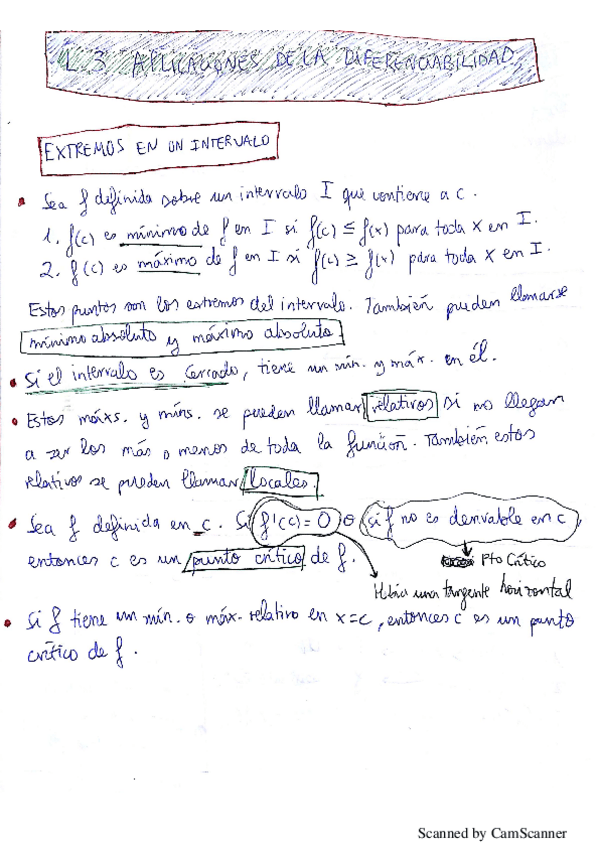 L.3 APLICACIONES DE LA DIFERENCIABILIDAD
EXTREMOS EN UN INTERVALO
• Sea f definida sobre un intervalo I que contiene a c.
1. f(c) es mínimo de f en I si f(c) ≤ f(x) para toda x en I.
2. f(c) es máximo de f en I si f(c) ≥ f(x) para toda x en I.
Estos puntos son los extremos del intervalo. También pueden llamarse
mínimo absoluto y máximo absoluto.
• Si el intervalo es cerrado, tiene un mín. y máx. en él.
• Estos máxs. y míns. se pueden llamar relativos si no llegan
a ser los más o menos de toda la función. También estos
relativos se pueden llamar locales.
• Sea f definida en c. Si f'(c) = 0 o si f no es derivable en c,
entonces c es un punto crítico de f.
Pto Crítico
una tangente horizontal
• Si f tiene un mín. o máx. relativo en x=c, entonces c es un punto
crítico de f.
Scanned by CamScanner